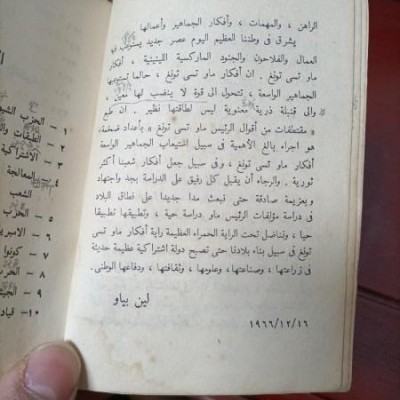 الراهن ، والمهمات ، وأفكار الجماهير وأعمالها
يشرق فى وطننا العظيم اليوم عصر جديد يستوعب فيه
العمال والفلاحون والجنود الماركسية اللينينية ، أفكار
ماو تسى تونغ . ان أفكار ماو تسى تونغ ، حالما تستوعبها
الجماهير الواسعة ، تتحول الى قوة لا ينضب لها معين
والى قنبلة ذرية معنوية ليس لطاقتها نظير . ان طبع
« مقتطفات من أقوال الرئيس ماو تسى تونغ » بأعداد ضخمة ،
هو اجراء بالغ الأهمية فى سبيل استيعاب الجماهير الواسعة
أفكار ماو تسى تونغ ، وفى سبيل جعل أفكار شعبنا أكثر
ثورية . والرجاء أن يقبل كل رفيق على الدراسة بجد واجتهاد
وبعزيمة صادقة حتى نبعث مدا جديدا على نطاق البلاد
فى دراسة مؤلفات الرئيس ماو دراسة حية ، وتطبيقها تطبيقا
حيا ، ونناضل تحت الراية الحمراء العظيمة راية أفكار ماو تسى
تونغ فى سبيل بناء بلادنا حتى تصبح دولة اشتراكية عظيمة حديثة
فى زراعتها ، وصناعتها ، وعلومها ، وثقافتها ، ودفاعها الوطنى.
لين بياو
١٩٦٦/١٢/١٦
١ – الحزب
٢ – الطبقات
٣ – الاشتراكية
٤ – المعالجة
الشعب
٥ – الحرب
٦ –
٧ – كونوا
٨ – الحرب
٩ –
١٠ –